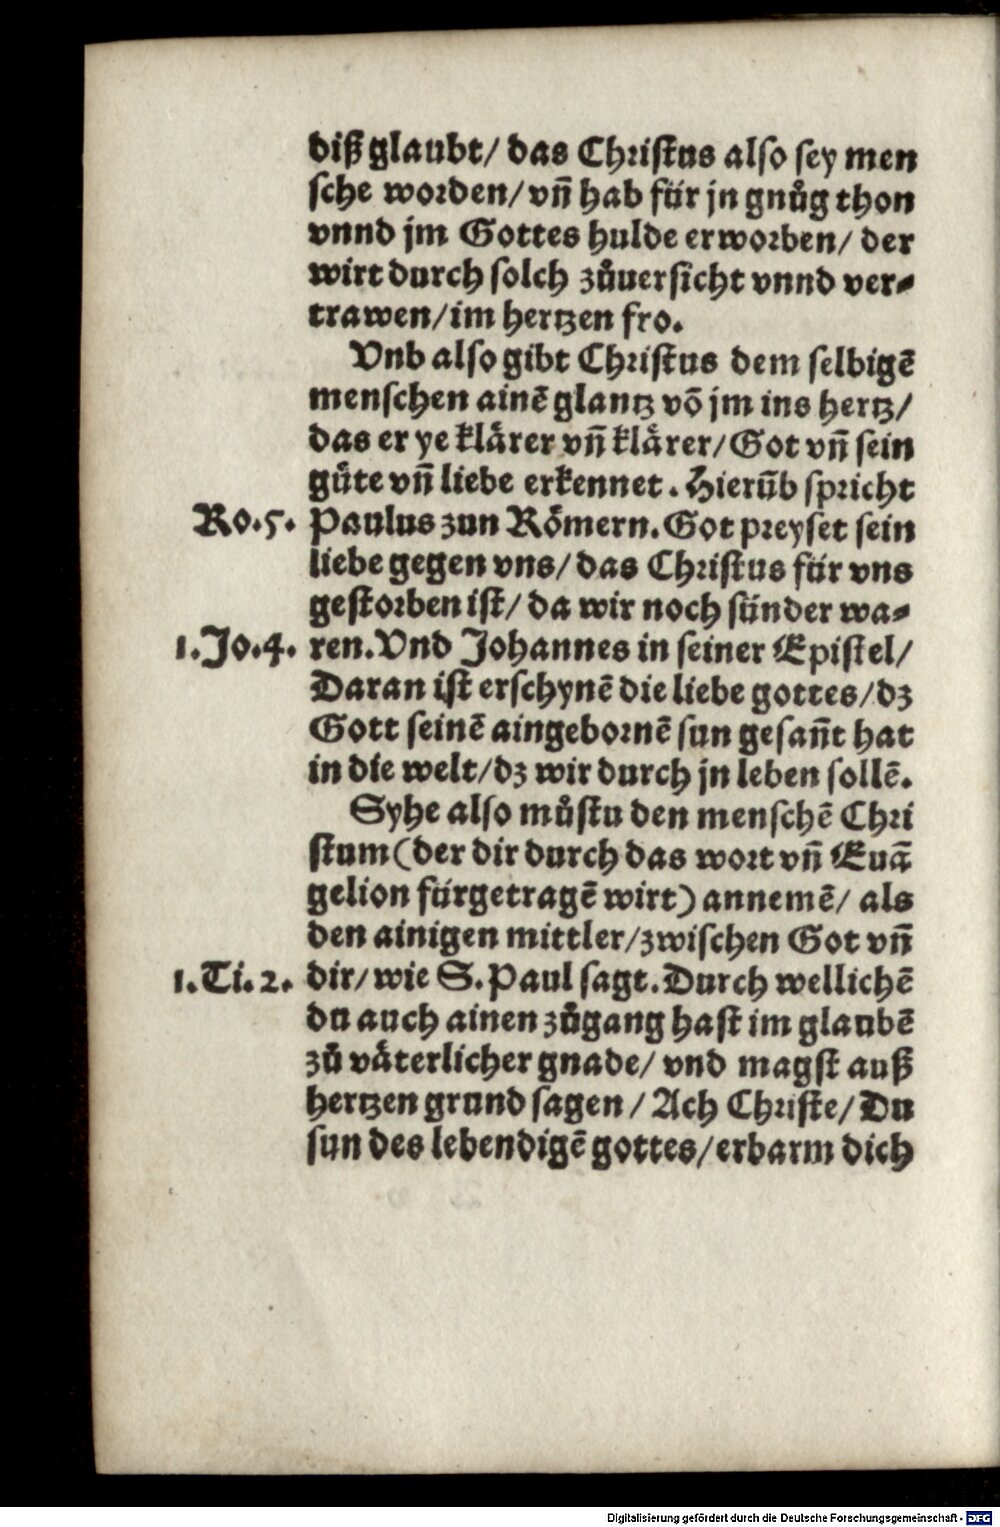 diß glaubt/ das Christus also sey men
sche worden/ vñ hab für jn gnůg thon
vnnd jm Gottes hulde erworben/ der
wirt durch solch zůuersicht vnnd ver⸗
trawen/ im hertzen fro.
Vnb also gibt Christus dem selbigẽ
menschen ainẽ glantz võ jm ins hertz/
das er ye klärer vñ klärer/ Got vñ sein
güte vñ liebe erkennet. Hierũb spricht
Ro.5. Paulus zun Römern. Got preyset sein
liebe gegen vns/ das Christus für vns
gestorben ist/ da wir noch sünder wa⸗
1.Jo.4. ren. Vnd Johannes in seiner Epistel/
Daran ist erschynẽ die liebe gottes/ dz
Gott seinẽ aingebornẽ sun gesañt hat
in die welt/ dz wir durch jn leben sollẽ.
Syhe also můstu den menschẽ Chri
stum (der dir durch das wort vñ Euã
gelion fürgetragẽ wirt) annemẽ/ als
den ainigen mittler/ zwischen Got vñ
1.Ti.2. dir/ wie S. Paul sagt. Durch wellichẽ
du auch ainen zůgang hast im glaubẽ
zů väterlicher gnade/ vnd magst auß
hertzen grund sagen / Ach Christe/ Du
sun des lebendigẽ gottes/ erbarm dich
Digitalisierung gefördert durch die Deutsche Forschungsgemeinschaft - DFG